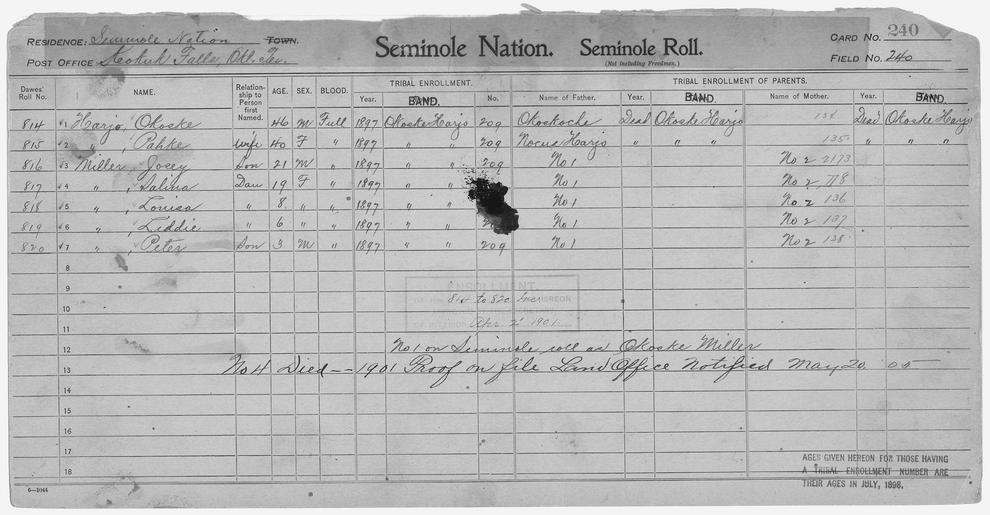 RESIDENCE: Seminole Nation TOWN. Seminole Nation. Seminole Roll. CARD NO. 240
POST OFFICE Keokuk Falls, Okl. Ter. (Not Including Freedmen.) FIELD NO. 240
Dawes' Roll No. NAME. Relationship to Person first Named. AGE. SEX. BLOOD. TRIBAL ENROLLMENT. TRIBAL ENROLLMENT OF PARENTS.
Year. BAND. No. Name of Father. Year. BAND. Name of Mother. Year. BAND.
814 1 Harjo, Okoske 46 M Full 1897 Okoske Harjo 209 Okoskoche Dead Okoske Harjo 134 Dead Okoske Harjo
815 2 " , Pahke Wife 40 F " 1897 " " 209 Nocus Harjo " " " 135 " " "
816 3 Miller, Josey Son 21 M " 1897 " " 209 No 1 No 2 2173
817 4 " , Salina Dau 19 F " 1897 " " No 1 No 2 778
818 5 " , Louisa " 8 " " 1897 " " No 1 No 2 136
819 6 " , Liddie " 6 " " 1897 " " No 1 No 2 137
820 7 " , Peter Son 3 M " 1897 " " 209 No 1 No 2 138
8
9 ENROLLMENT.
10 814 to 820 HEREON
11 Apr. 2 1901
12 No 1 on Seminole roll as Okoske Miller
13 No 4 Died -- 1901 Proof on file Land Office Notified May 20 05
14
15
16
17
18
AGES GIVEN HEREON FOR THOSE HAVING
A TRIBAL ENROLLMENT NUMBER ARE
THEIR AGES IN JULY, 1898.
6-1044